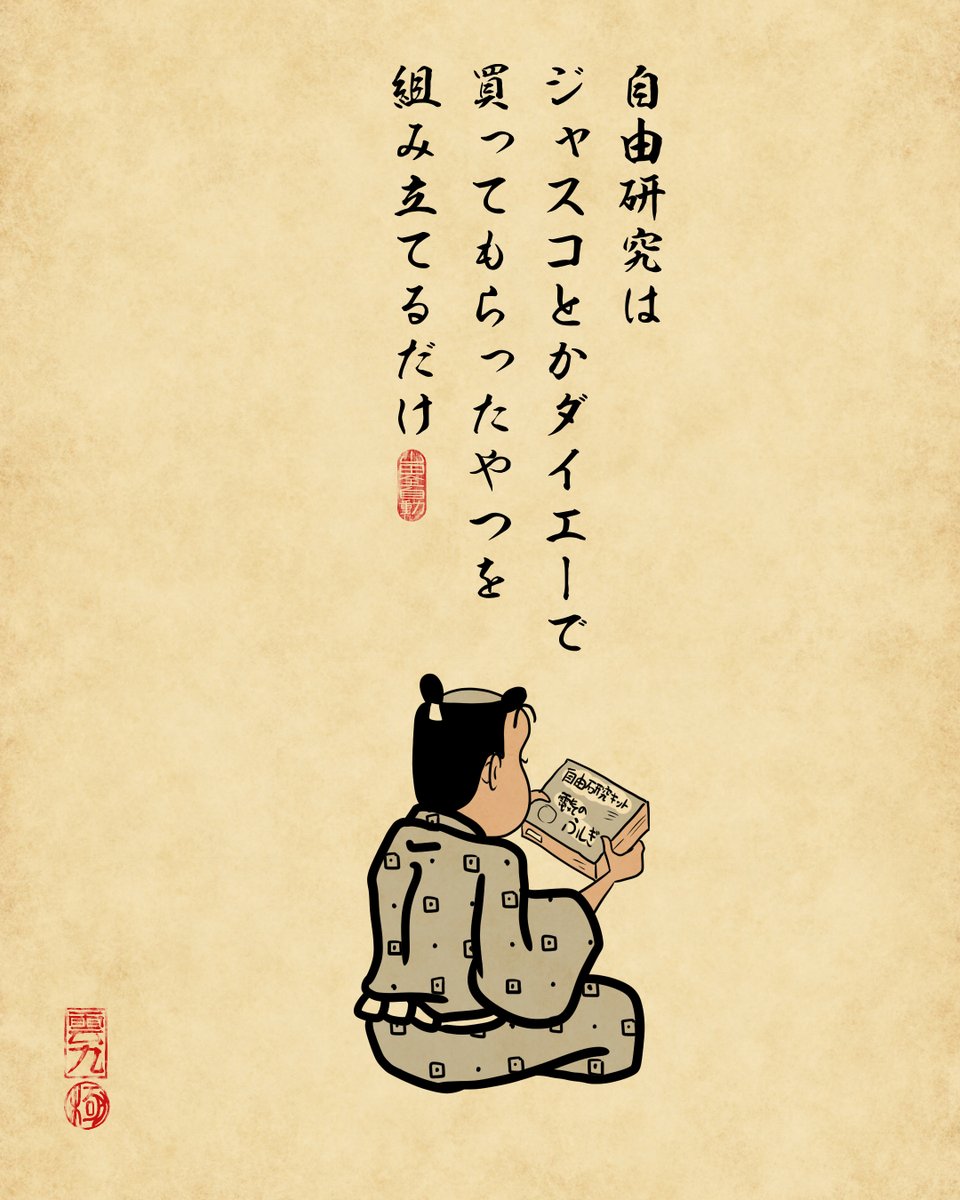 自由研究は
ジャスコとかダイエーで
買ってもらったやつを
組み立てるだけ
自由研究キット
電気の
ふしぎ